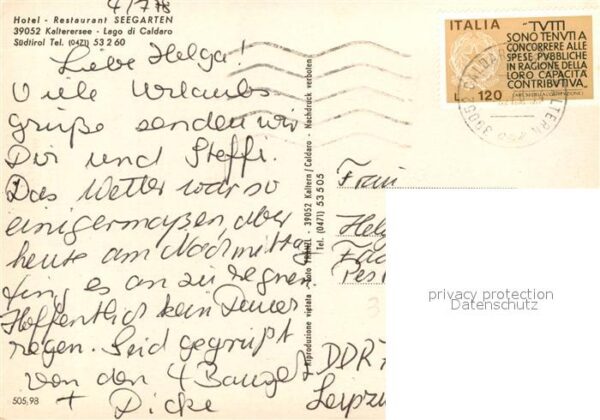 4/7 78
Hotel - Restaurant SEEGARTEN
39052 Kalterersee - Lago di Caldaro
Südtirol Tel. (0471) 53 2 60
Liebe Helga!
Viele Urlaubs-
grüße senden wir
Dir und Steffi.
Das Wetter war so
einigermaßen, aber
heute am Nachmittag
fing es an zu regnen.
Hoffentlich kein Dauer
regen. Seid gegrüßt
von den 4
+ Dicke
505,98
Riproduzione vietata - Foto - 39052 Kaltern/Caldaro - Nachdruck verboten
Tel. (0471) 53 5 05
ITALIA
"TUTTI
SONO TENUTI A
CONCORRERE ALLE
SPESE PUBBLICHE
IN RAGIONE DELLA
LORO CAPACITÀ
CONTRIBUTIVA"
L. 120
39052 CALDARO KALTERN
Frau
Helg
DDR
Leipzi
privacy protection
Datenschutz